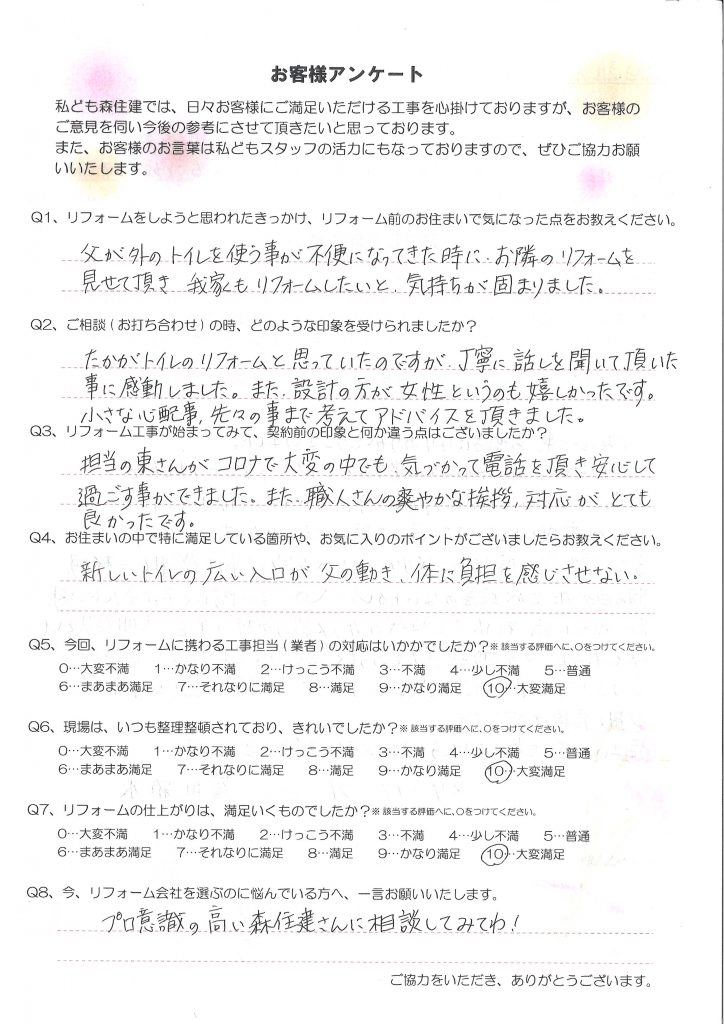 お客様アンケート
私ども森住建では、日々お客様にご満足いただける工事を心掛けておりますが、お客様の
ご意見を伺い今後の参考にさせて頂きたいと思っております。
また、お客様のお言葉は私どもスタッフの活力にもなっておりますので、ぜひご協力お願
いいたします。
Q1、リフォームをしようと思われたきっかけ、リフォーム前のお住まいで気になった点をお教えください。
父が外のトイレを使う事が不便になってきた時に、お隣のリフォームを
見せて頂き 我家もリフォームしたいと、気持ちが固まりました。
Q2、ご相談(お打ち合わせ)の時、どのような印象を受けられましたか?
たかがトイレのリフォームと思っていたのですが、丁寧に話しを聞いて頂いた
事に感動しました。また、設計の方が女性というのも嬉しかったです。
小さな心配事、先々の事まで考えてアドバイスを頂きました。
Q3、リフォーム工事が始まってみて、契約前の印象と何か違う点はございましたか?
担当の東さんがコロナで大変の中でも、気づかって電話を頂き安心して
過ごす事ができました。また、職人さんの爽やかな挨拶、対応がとても
良かったです。
Q4、お住まいの中で特に満足している箇所や、お気に入りのポイントがございましたらお教えください。
新しいトイレの広い入口が父の動き、体に負担を感じさせない。
Q5、今回、リフォームに携わる工事担当(業者)の対応はいかかでしたか?※該当する評価へに、○をつけてください。
0…大変不満 1…かなり不満 2…けっこう不満 3…不満 4…少し不満 5…普通
6…まあまあ満足 7…それなりに満足 8…満足 9…かなり満足 10…大変満足
Q6、現場は、いつも整理整頓されており、きれいでしたか?※該当する評価へに、○をつけてください。
0…大変不満 1…かなり不満 2…けっこう不満 3…不満 4…少し不満 5…普通
6…まあまあ満足 7…それなりに満足 8…満足 9…かなり満足 10…大変満足
Q7、リフォームの仕上がりは、満足いくものでしたか?※該当する評価へに、○をつけてください。
0…大変不満 1…かなり不満 2…けっこう不満 3…不満 4…少し不満 5…普通
6…まあまあ満足 7…それなりに満足 8…満足 9…かなり満足 10…大変満足
Q8、今、リフォーム会社を選ぶのに悩んでいる方へ、一言お願いいたします。
プロ意識の高い森住建さんに相談してみてわ!
ご協力をいただき、ありがとうございます。